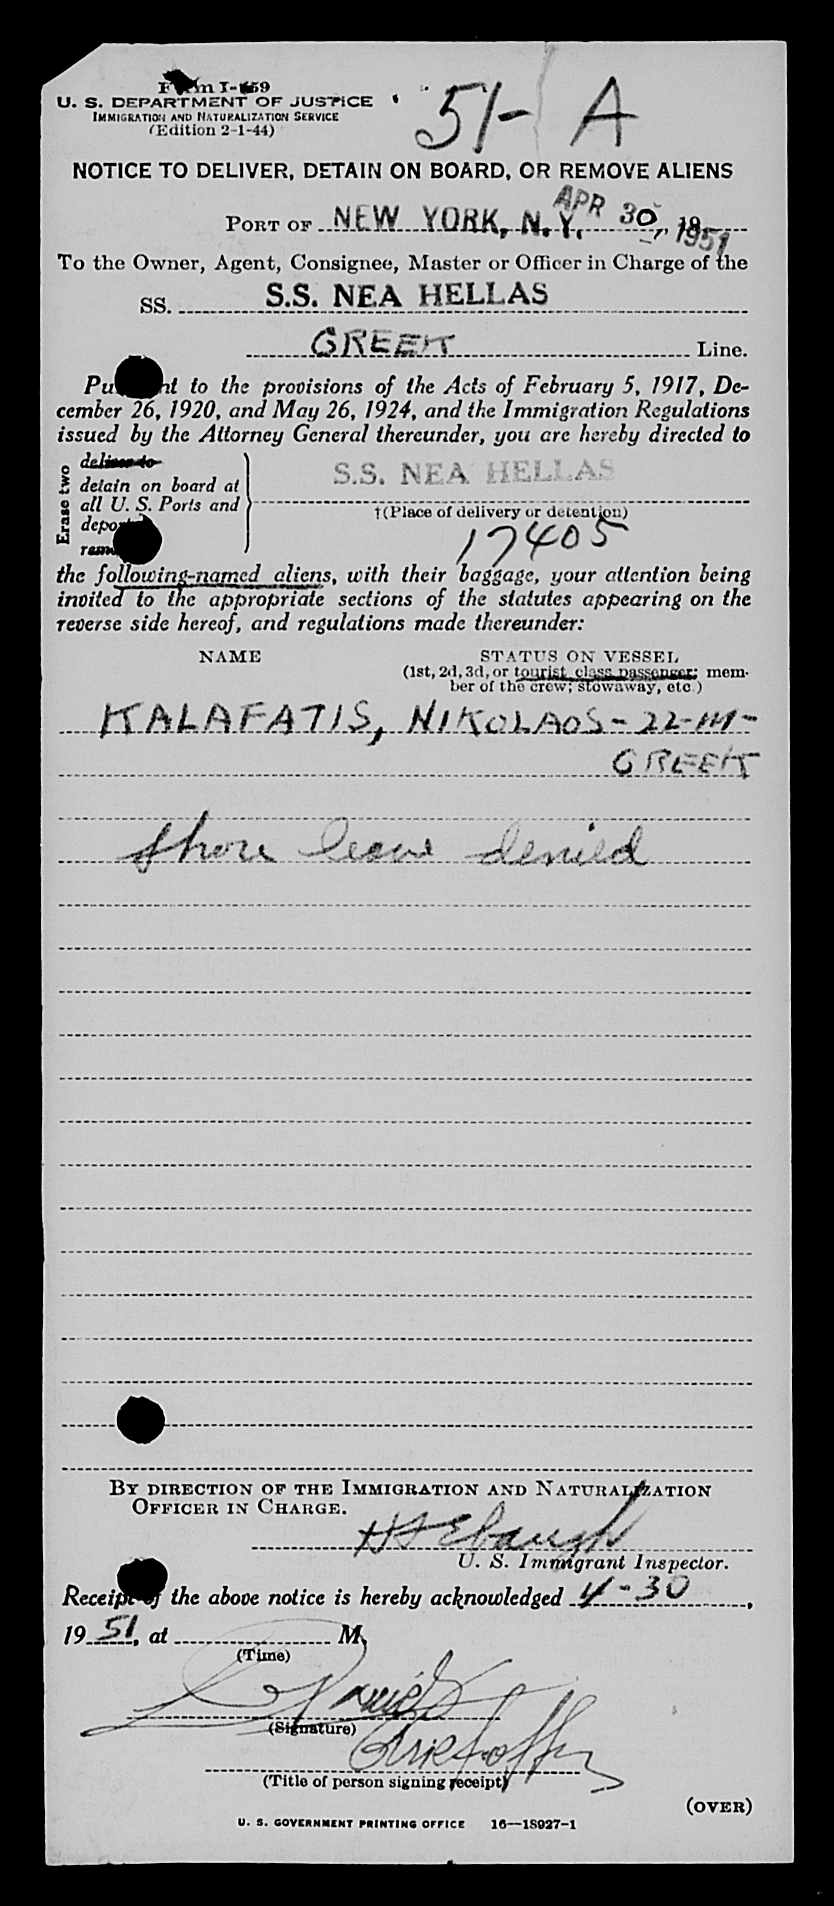 Form I-259
U. S. DEPARTMENT OF JUSTICE
IMMIGRATION AND NATURALIZATION SERVICE
(Edition 2-1-44)
51- A
NOTICE TO DELIVER, DETAIN ON BOARD, OR REMOVE ALIENS
PORT OF NEW YORK, N. Y. APR 30 1951, 19
To the Owner, Agent, Consignee, Master or Officer in Charge of the
SS. S.S. NEA HELLAS
GREEK Line.
Pursuant to the provisions of the Acts of February 5, 1917, De-
cember 26, 1920, and May 26, 1924, and the Immigration Regulations
issued by the Attorney General thereunder, you are hereby directed to
Erase two
deliver to
detain on board at
all U. S. Ports and
deport
remove
S.S. NEA HELLAS
†(Place of delivery or detention)
17405
the following-named aliens, with their baggage, your attention being
invited to the appropriate sections of the statutes appearing on the
reverse side hereof, and regulations made thereunder:
NAME STATUS ON VESSEL
(1st, 2d, 3d, or tourist class passenger; mem-
ber of the crew; stowaway, etc.)
KALAFATIS, NIKOLAOS - 22 - M -
GREEK
Shore leave denied
BY DIRECTION OF THE IMMIGRATION AND NATURALIZATION
OFFICER IN CHARGE.
U. S. Immigrant Inspector.
Receipt of the above notice is hereby acknowledged 4-30,
19 51, at M.
(Time)
(Signature)
(Title of person signing receipt)
(OVER)
U. S. GOVERNMENT PRINTING OFFICE 16—18927-1